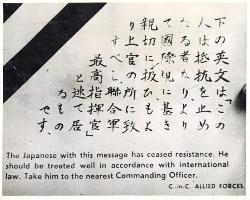 下の英文は「この
人は抵抗を止め
た者なり、より
て國際規に基き
親切に扱ひ、もよ
り上官の所に致
すべし、聯合軍
最高指揮官」
と述べて居
るのです。
The Japanese with this message has ceased resistance. He
should be treated well in accordance with international
law. Take him to the nearest Commanding Officer.
C.-in-C. ALLIED FORCES.